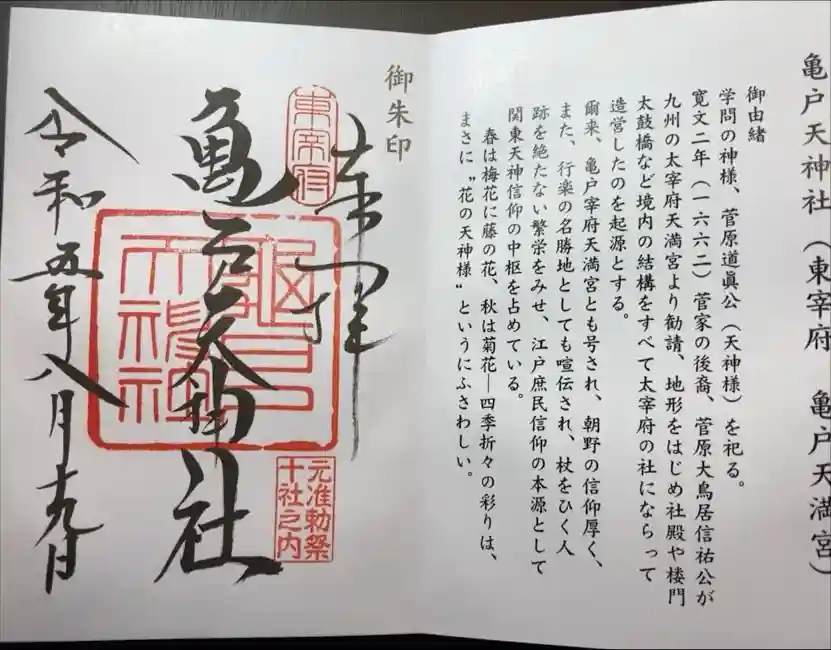 亀戸天神社(東宰府 亀戸天満宮)
御由緒
学問の神様、菅原道眞公(天神様)を祀る。
寛文二年(一六六二)菅家の後裔、菅原大鳥居信祐公が
九州の太宰府天満宮より勧請、地形をはじめ社殿や楼門
太鼓橋など境内の結構をすべて太宰府の社にならって
造営したのを起源とする。
爾来、亀戸宰府天満宮とも号され、朝野の信仰厚く、
また、行楽の名勝地としても喧伝され、杖をひく人
跡を絶たない繁栄をみせ、江戸庶民信仰の本源として
関東天神信仰の中枢を占めている。
春は梅花に藤の花、秋は菊花―四季折々の彩りは、
まさに〝花の天神様〟というにふさわしい。
御朱印
奉拝
東宰府
亀戸天神社
亀戸天神社
元准勅祭
十社之内
令和五年八月十九日